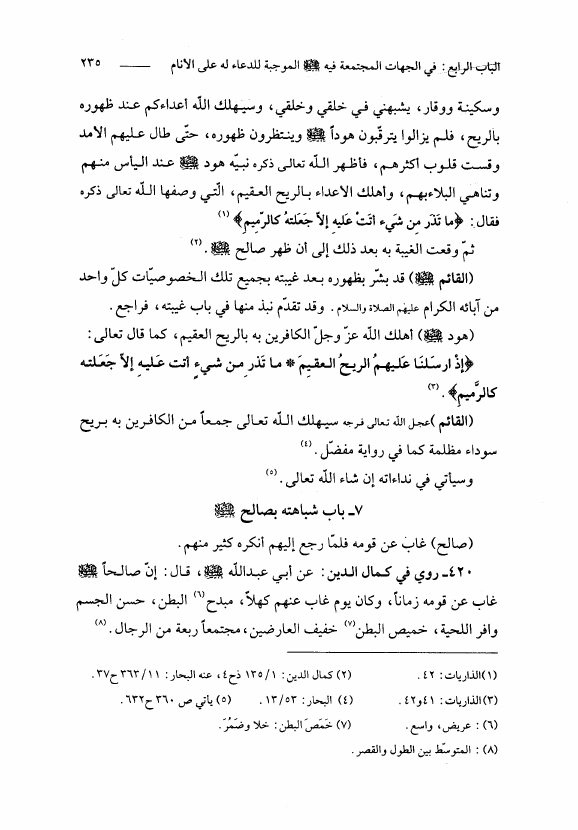 الباب الرابع: في الجهات المجتمعة فيه ﷺ الموجبة للدعاء له على الأنام ـــــــ ٢٣٥
وسكينة ووقار، يشبهني في خلقي وخلقي، وسيهلك اللّه أعداءكم عند ظهوره
بالريح، فلم يزالوا يترقّبون هوداً ﷺ وينتظرون ظهوره، حتّى طال عليهم الأمد
وقست قلوب أكثرهم، فأظهر اللّه تعالى ذكره نبيّه هود ﷺ عند اليأس منهم
وتناهي البلاءبهم، وأهلك الأعداء بالريح العقيم، الّتي وصفها اللّه تعالى ذكره
فقال: ﴿ما تَذَر مِن شَيء أتَتْ عَليه إلاّ جَعَلتهُ كالرّميم﴾ (١)
ثمّ وقعت الغيبة به بعد ذلك إلى أن ظهر صالح ﷺ. (٢)
(القائم ﷺ) قد بشّر بظهوره بعد غيبته بجميع تلك الخصوصيّات كلّ واحد
من آبائه الكرام عليهم الصلاة والسلام. وقد تقدّم نبذ منها في باب غيبته، فراجع.
(هود ﷺ) أهلك اللّه عزّ وجلّ الكافرين به بالريح العقيم، كما قال تعالى:
﴿إذْ ارسَلنَا عَليهمُ الريحُ العقيمَ * ما تَذر مـن شـيءٍ أتت عَليـهِ إلاّ جَعَلتـه
كالرَّميمِ﴾. (٣)
(القائم )عجل اللّه تعالى فرجه سيهلك اللّه تعالى جمعاً من الكافرين به بريح
سوداء مظلمة كما في رواية مفضّل. (٤)
وسيأتي في نداءاته إن شاء اللّه تعالى. (٥)
٧ـ باب شباهته بصالح ﷺ
(صالح) غاب عن قومه فلمّا رجع إليهم أنكره كثير منهم.
٤٢٠ـ روي في كمال الدين: عن أبي عبداللّه ﷺ، قال: إنّ صالحاً ﷺ
غاب عن قومه زماناً، وكان يوم غاب عنهم كهلاً، مبدح(٦) البطن، حسن الجسم
وافر اللحية، خميص البطن(٧) خفيف العارضين،مجتمعاً ربعة من الرجال. (٨)
(١)الذاريات: ٤٢. (٢) كمال الدين: ١٣٥/١ ذح٤، عنه البحار: ٣٦٣/١١ ح٣٧.
(٣)الذاريات: ٤١و٤٢. (٤) البحار: ١٣/٥٣. (٥) يأتي ص ٣٦٠ ح٦٣٢.
(٦): عريض، واسع. (٧) خَمَصَ البطن: خلا وضَمُرَ.
(٨) : المتوسّط بين الطول والقصر.